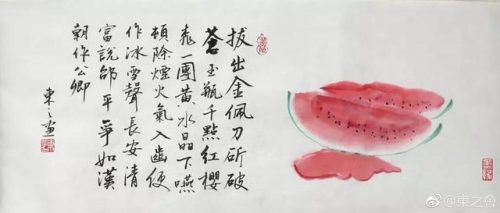 拔出金佩刀斫破
蒼玉瓶千點紅櫻
桃一團黄水晶下嚥
頓除煙火氣入齒便
作冰雪聲長安清
富說邵平爭如漢
朝作公卿
東之畫